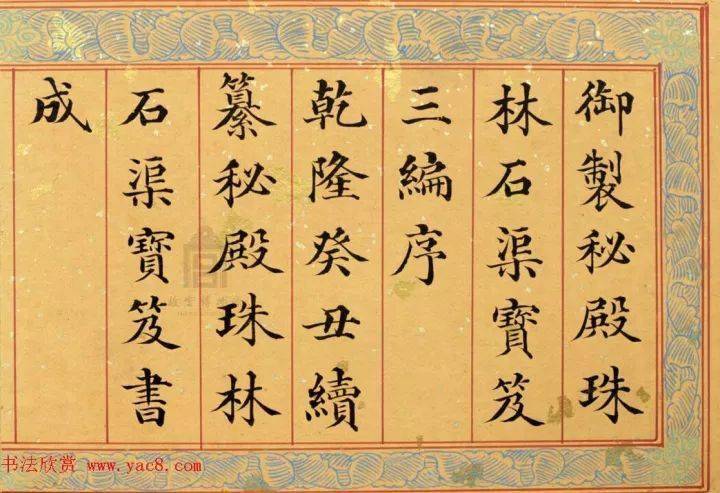 御製秘殿珠
林石渠寶笈
三編序
乾隆癸丑續
纂秘殿珠林
石渠寶笈書
成
书法欣赏 www.yac8.com